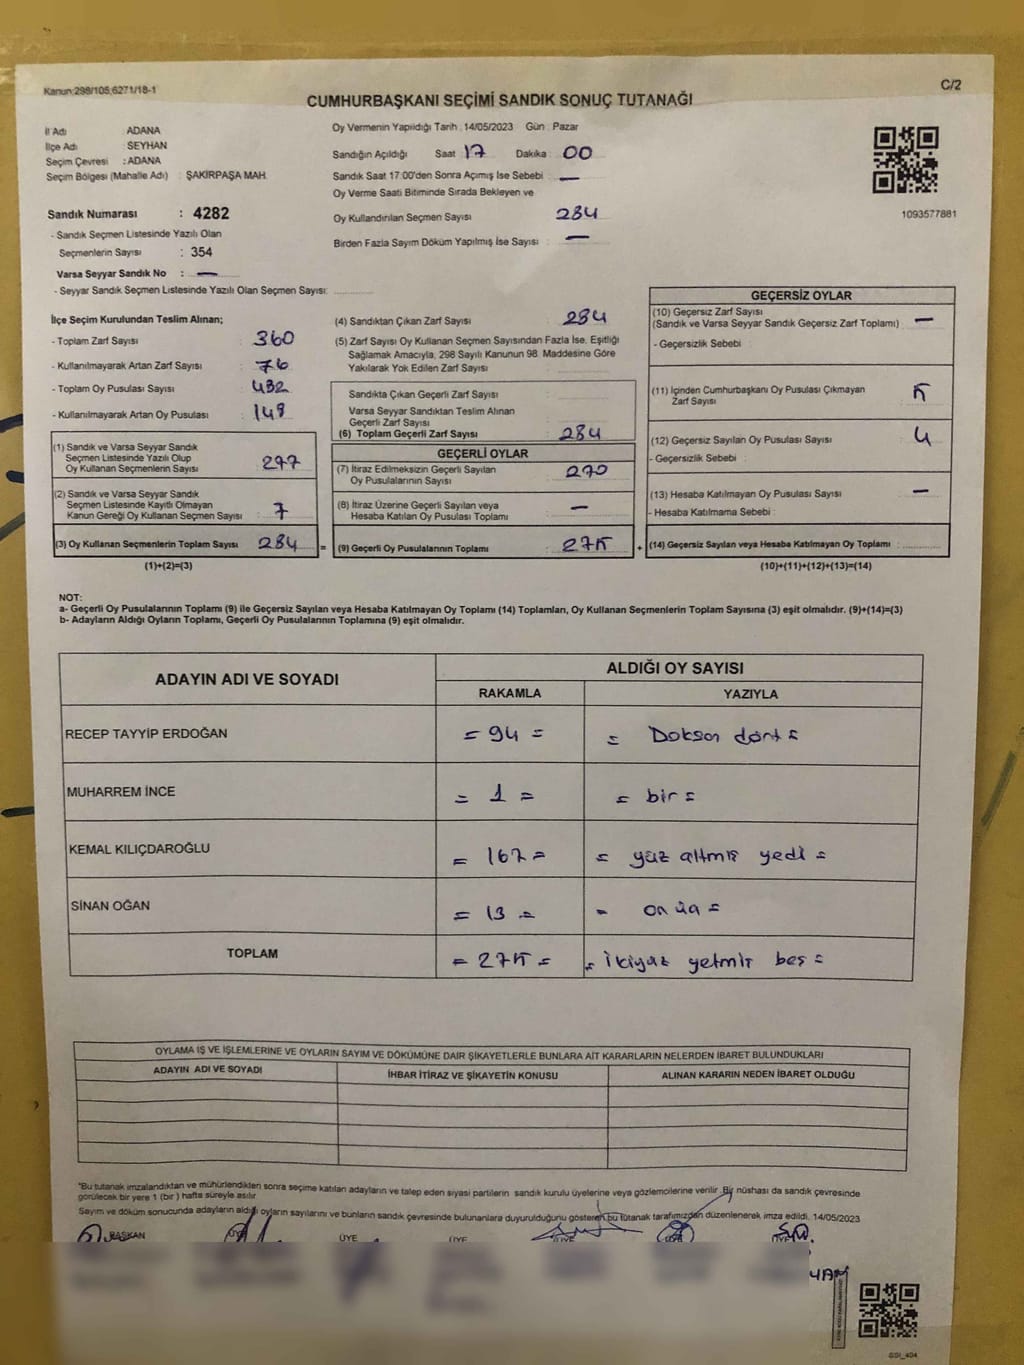 Kanun:298/105;6271/18-1
C/2
CUMHURBAŞKANI SEÇİMİ SANDIK SONUÇ TUTANAĞI
İl Adı : ADANA
İlçe Adı : SEYHAN
Seçim Çevresi : ADANA
Seçim Bölgesi (Mahalle Adı) : ŞAKİRPAŞA MAH.
Sandık Numarası : 4282
- Sandık Seçmen Listesinde Yazılı Olan
Seçmenlerin Sayısı : 354
Varsa Seyyar Sandık No : —
- Seyyar Sandık Seçmen Listesinde Yazılı Olan Seçmen Sayısı:
Oy Vermenin Yapıldığı Tarih : 14/05/2023 Gün : Pazar
Sandığın Açıldığı Saat 17 Dakika : 00
Sandık Saat 17:00'den Sonra Açımış İse Sebebi : —
Oy Verme Saati Bitiminde Sırada Bekleyen ve
Oy Kullandırılan Seçmen Sayısı 284
Birden Fazla Sayım Döküm Yapılmış İse Sayısı : —
1093577881
İlçe Seçim Kurulundan Teslim Alınan;
- Toplam Zarf Sayısı : 360
- Kullanılmayarak Artan Zarf Sayısı : 76
- Toplam Oy Pusulası Sayısı : 432
- Kullanılmayarak Artan Oy Pusulası : 148
(1) Sandık ve Varsa Seyyar Sandık
Seçmen Listesinde Yazılı Olup
Oy Kullanan Seçmenlerin Sayısı : 277
(2) Sandık ve Varsa Seyyar Sandık
Seçmen Listesinde Kayıtlı Olmayan
Kanun Gereği Oy Kullanan Seçmen Sayısı : 7
(3) Oy Kullanan Seçmenlerin Toplam Sayısı : 284 =
(1)+(2)=(3)
(4) Sandıktan Çıkan Zarf Sayısı : 284
(5) Zarf Sayısı Oy Kullanan Seçmen Sayısından Fazla İse, Eşitliği
Sağlamak Amacıyla, 298 Sayılı Kanunun 98. Maddesine Göre
Yakılarak Yok Edilen Zarf Sayısı :
Sandıkta Çıkan Geçerli Zarf Sayısı :
Varsa Seyyar Sandıktan Teslim Alınan
Geçerli Zarf Sayısı :
(6) Toplam Geçerli Zarf Sayısı : 284
GEÇERLİ OYLAR
(7) İtiraz Edilmeksizin Geçerli Sayılan
Oy Pusulalarının Sayısı : 270
(8) İtiraz Üzerine Geçerli Sayılan veya
Hesaba Katılan Oy Pusulası Toplamı : —
(9) Geçerli Oy Pusulalarının Toplamı : 275 +
GEÇERSİZ OYLAR
(10) Geçersiz Zarf Sayısı
(Sandık ve Varsa Seyyar Sandık Geçersiz Zarf Toplamı) : —
- Geçersizlik Sebebi :
(11) İçinden Cumhurbaşkanı Oy Pusulası Çıkmayan
Zarf Sayısı : 5
(12) Geçersiz Sayılan Oy Pusulası Sayısı : 4
- Geçersizlik Sebebi :
(13) Hesaba Katılmayan Oy Pusulası Sayısı : —
- Hesaba Katılmama Sebebi :
(14) Geçersiz Sayılan veya Hesaba Katılmayan Oy Toplamı :
(10)+(11)+(12)+(13)=(14)
NOT:
a- Geçerli Oy Pusulalarının Toplamı (9) ile Geçersiz Sayılan veya Hesaba Katılmayan Oy Toplamı (14) Toplamları, Oy Kullanan Seçmenlerin Toplam Sayısına (3) eşit olmalıdır. (9)+(14)=(3)
b- Adayların Aldığı Oyların Toplamı, Geçerli Oy Pusulalarının Toplamına (9) eşit olmalıdır.
ADAYIN ADI VE SOYADI
ALDIĞI OY SAYISI
RAKAMLA YAZIYLA
RECEP TAYYİP ERDOĞAN = 94 = = Doksan dört =
MUHARREM İNCE = 1 = = bir =
KEMAL KILIÇDAROĞLU = 167 = = yüz altmış yedi =
SİNAN OĞAN = 13 = = on üç =
TOPLAM = 275 = = ikiyüz yetmiş beş =
OYLAMA İŞ VE İŞLEMLERİNE VE OYLARIN SAYIM VE DÖKÜMÜNE DAİR ŞİKAYETLERLE BUNLARA AİT KARARLARIN NELERDEN İBARET BULUNDUKLARI
ADAYIN ADI VE SOYADI İHBAR İTİRAZ VE ŞİKAYETİN KONUSU ALINAN KARARIN NEDEN İBARET OLDUĞU
*Bu tutanak imzalandıktan ve mühürlendikten sonra seçime katılan adayların ve talep eden siyasi partilerin sandık kurulu üyelerine veya gözlemcilerine verilir. Bir nüshası da sandık çevresinde
görülecek bir yere 1 (bir) hafta süreyle asılır.
Sayım ve döküm sonucunda adayların aldığı oyların sayılarını ve bunların sandık çevresinde bulunanlara duyurulduğunu gösteren bu tutanak tarafımızdan düzenlenerek imza edildi. 14/05/2023
BAŞKAN ÜYE ÜYE ÜYE ÜYE ÜYE ÜYE